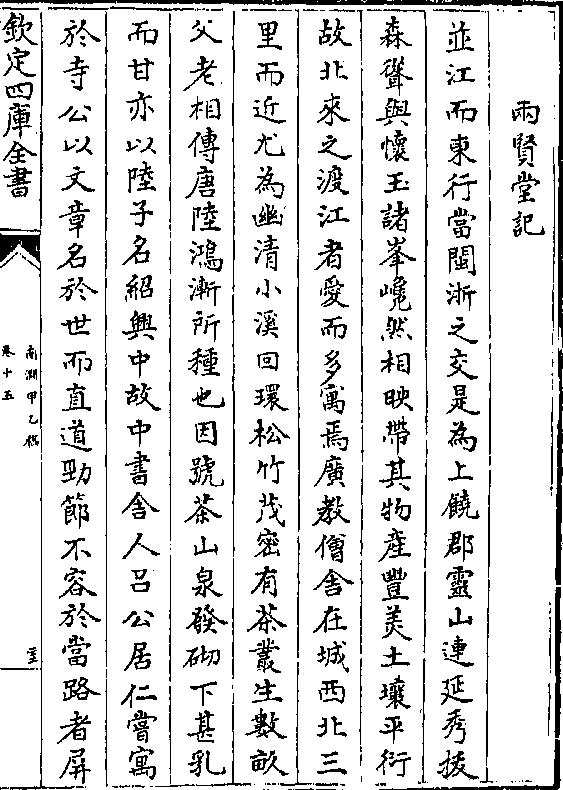 兩賢堂記
並江而東行當閩浙之交是為上饒郡靈山連延秀拔
森聳與懷玉諸峯巉然相映帶其物産豐美土壤平衍
故北來之渡江者愛而多寓焉廣教僧舍在城西北三
里而近尤為幽清小溪回環松竹茂密有茶叢生數畝
父老相傳唐陸鴻漸所種也因號茶山泉發砌下甚乳
而甘亦以陸子名紹興中故中書舍人吕公居仁嘗寓
於寺公以文章名於世而直道勁節不容於當路者屏
欽定四庫全書
南澗甲乙稿
卷十五